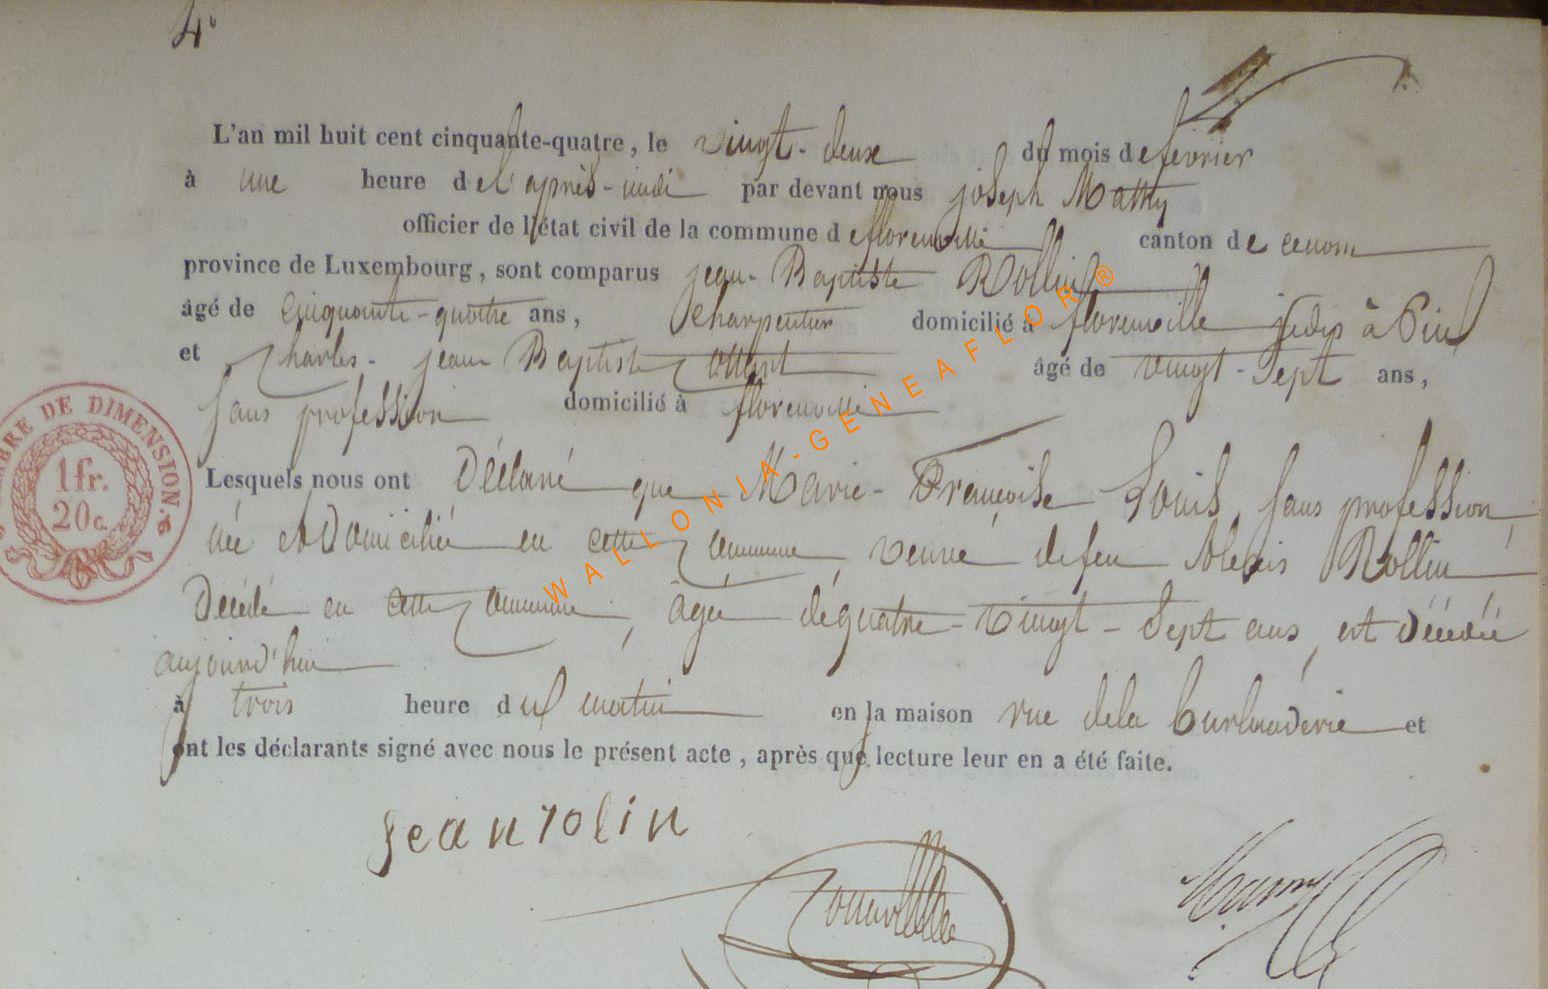 4
L'an mil huit cent cinquante-quatre, le vingt-deux du mois de fevrier
à une heure de l'après-midi par devant nous joseph Mathy
officier de l'état civil de la commune de florenville canton de
province de Luxembourg, sont comparus jean-Baptiste Rollin
âgé de cinquante-quatre ans, charpentier domicilié à florenville
et Charles-jean Baptiste âgé de vingt-sept ans,
sans profession domicilié à florenville
Lesquels nous ont Déclaré que Marie-Françoise Louis, sans profession,
née et Domiciliée en cette commune, veuve de feu Alexis Rollin
Décédé en cette commune, âgée de quatre-vingt-sept ans, est Décédée
aujourd'hui
à trois heure du matin en la maison rue de la et
ont les déclarants signé avec nous le présent acte, après que lecture leur en a été faite.
jean rolin
TIMBRE DE DIMENSION.
1 fr.
20 c.
WALLONIA-GENEAFLOR®